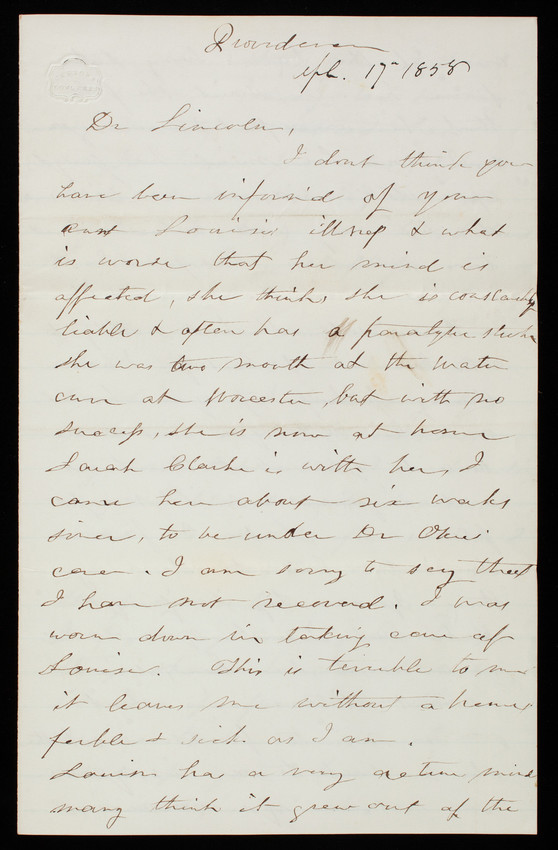 Providence
Sept. 17th 1858
Dr Lincoln,
I dont think you
have been informd of your
aunt Louisis illness & what
is worse that her mind is
affected, she thinks she is constantly
liable & often has a paralytic stroke
she was two month at the water
cure at Worcester, but with no
success, she is now at home
Sarah Clarke is with her, I
came here about six weeks
since, to be under Dr Okies
care. I am sorry to say that
I have not recoverd. I was
worn down in taking care of
Louisa. This is terrible to me
it leaves me without a home
feeble & sick as I am.
Louisa has a very active mind
many think it grew out of the